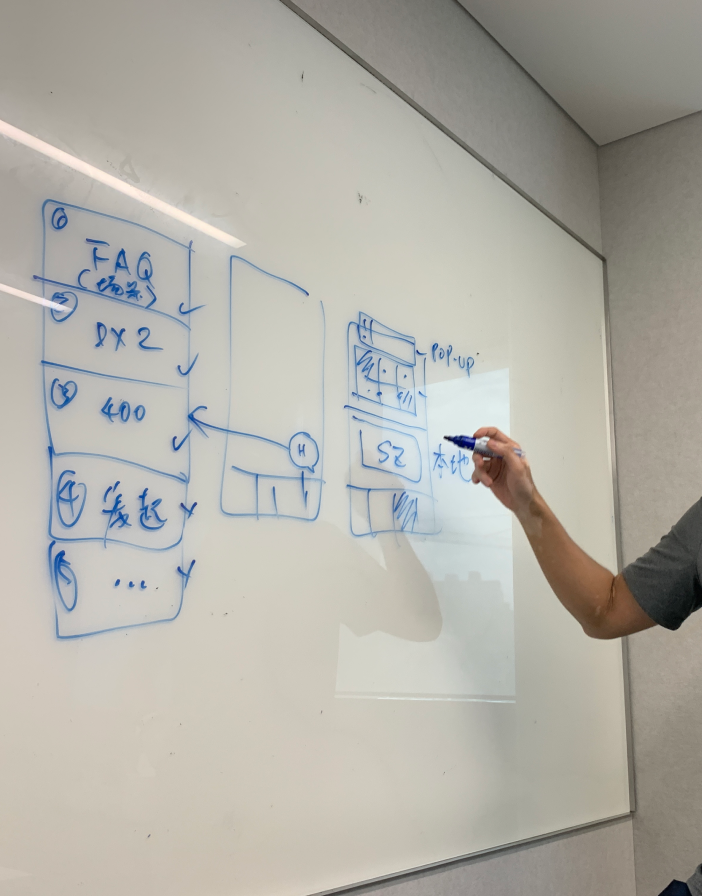 ①
FAQ
(场景)
②
DX2
③
400
④
发起
⑤
....
H
POP-UP
SZ
本地